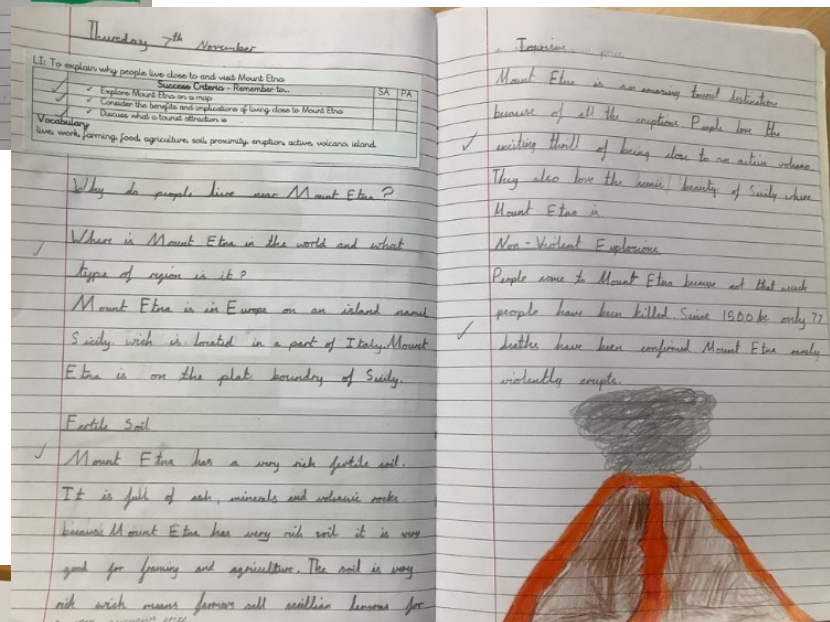 Thursday 7th November
LI: To explain why people live close to and visit Mount Etna
Success Criteria - Remember to...
SA PA
✓ Explore Mount Etna on a map
✓ Consider the benefits and implications of living close to Mount Etna
✓ Discuss what a tourist attraction is
Vocabulary
live, work, farming, food, agriculture, soil, proximity, eruption, active, volcano, island
Why do people live near Mount Etna?
Where is Mount Etna in the world and what
type of region is it?
Mount Etna is in Europe on an island named
Sicily wich is located in a part of Italy. Mount
Etna is on the plat boundry of Sicily.
Fertile Soil
Mount Etna has a very rich fertile soil.
It is full of ash, minerals and volcanic rocks
because Mount Etna has very rich soil it is very
good for framing and agriculture. The soil is very
rich wich means farmers sell scillian lemons for
Tourism
Mount Etna is an amazing tourist destination
because of all the eruptions. People love the
exciting thrill of being close to an active volcano.
They also love the beauty of Sicily where
Mount Etna is
Non-Violent Explosions
People come to Mount Etna because not that much
people have been killed. Since 1500 bc only 77
deaths have been confirmed Mount Etna rarely
violently erupts.